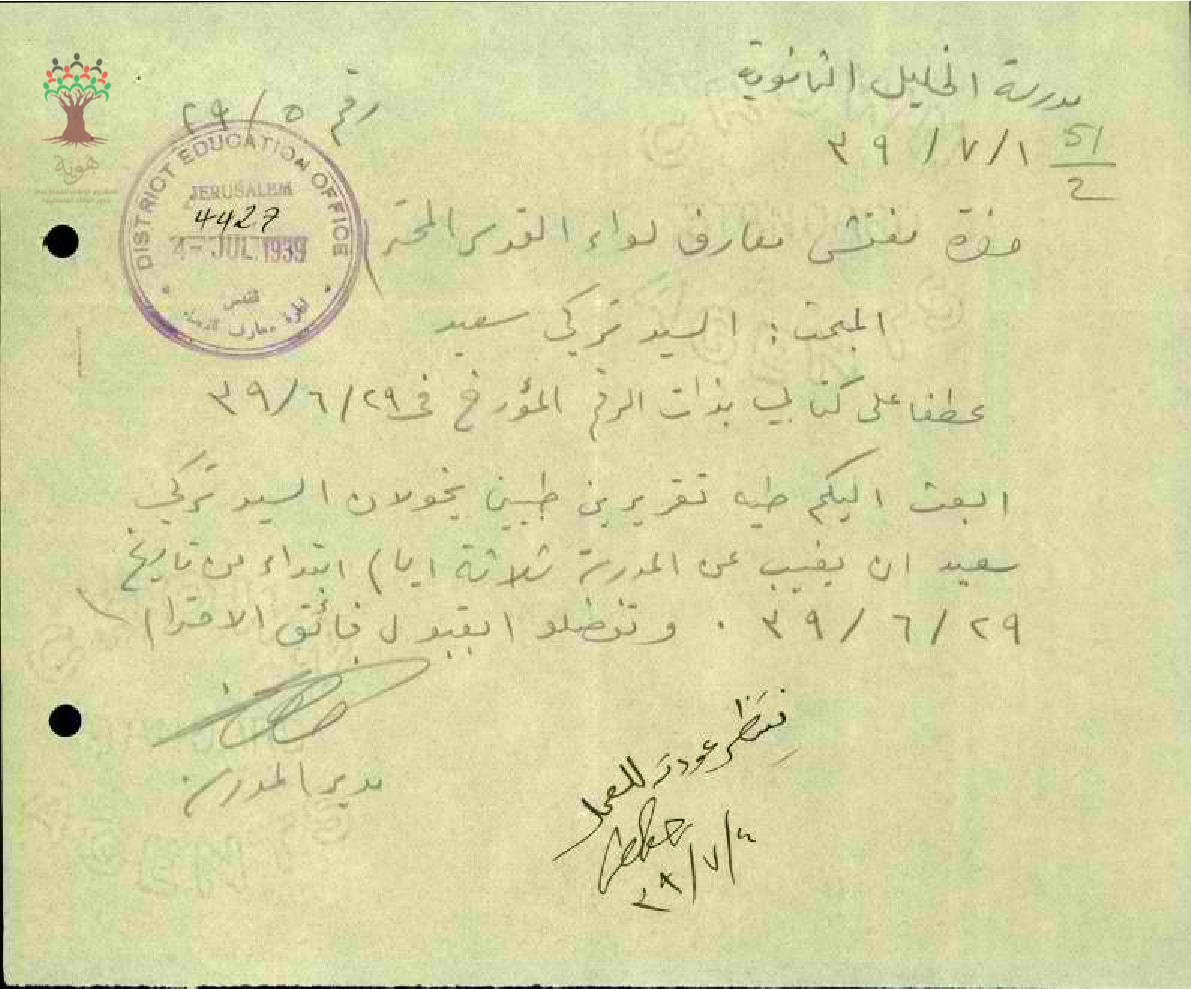 مدرسة الخليل الثانوية
رقم ٥ / ٢٩
٣٩ / ٧ / ١
51
2
DISTRICT EDUCATION OFFICE
JERUSALEM
4427
4 - JUL. 1939
القدس
هوية
حضرة مفتش معارف لواء القدس المحترم
المبحث : السيد تركي سعيد
عطفا على كتابي بذات الرقم المؤرخ في ٢٩ / ٦ / ٣٩
ابعث اليكم طيه تقريرين طبيين يخولان السيد تركي
سعيد ان يغيب عن المدرسة ثلاثة ايام ابتداء من تاريخ
٢٩ / ٦ / ٣٩ . وتفضلوا بقبول فائق الاحترام
مدير المدرسة
ننتظر عودته للعمل